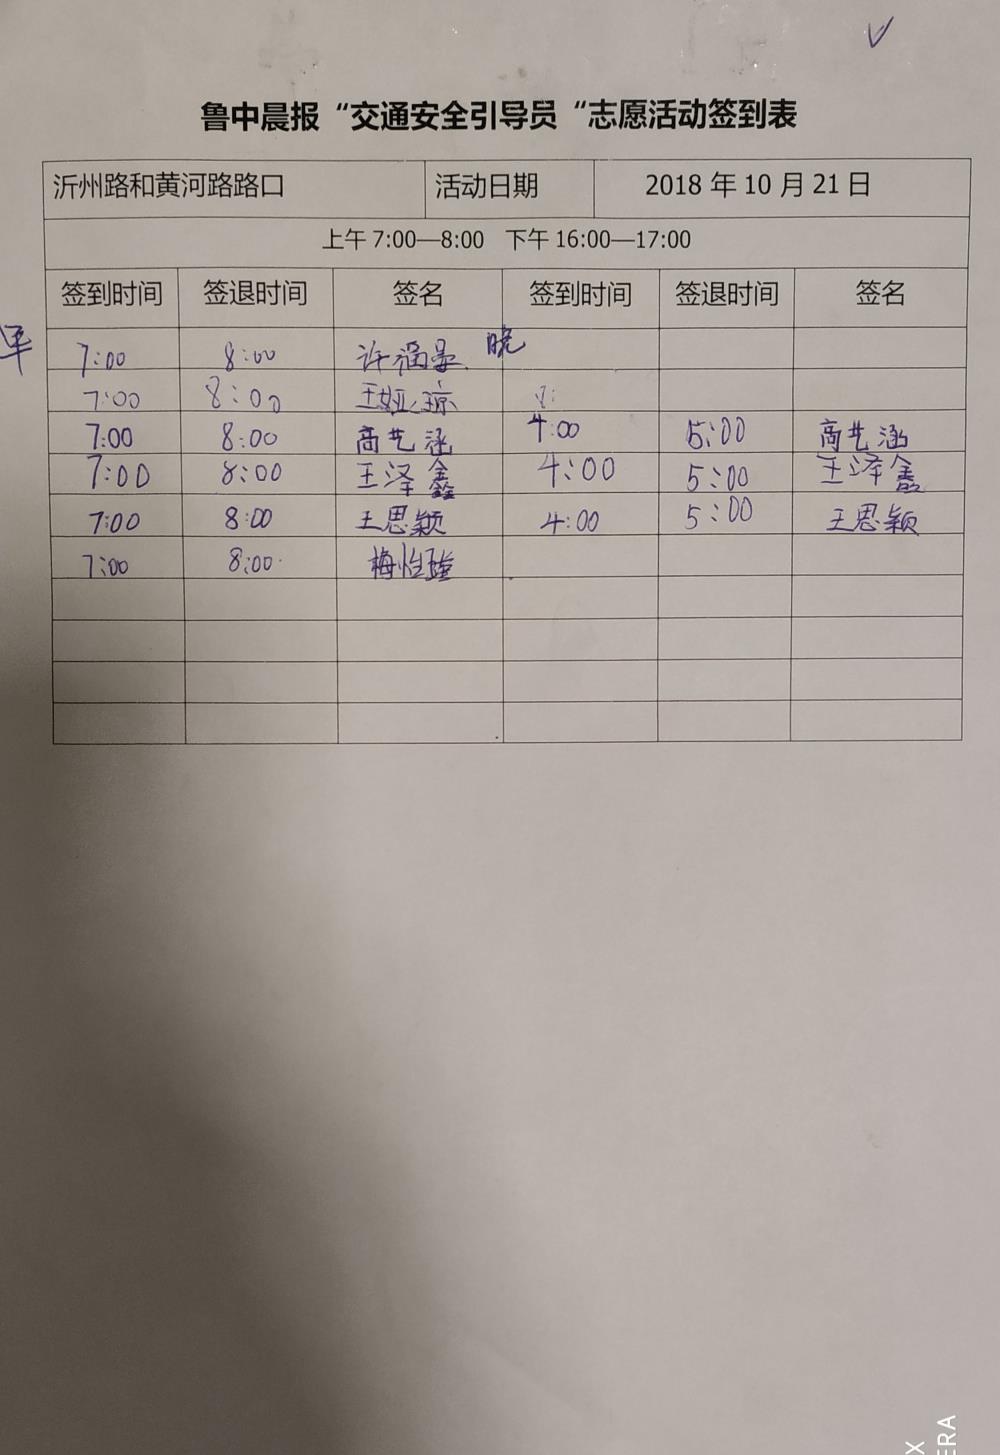 鲁中晨报“交通安全引导员“志愿活动签到表
沂州路和黄河路路口 活动日期 2018 年 10 月 21 日
上午 7:00—8:00 下午 16:00—17:00
签到时间 签退时间 签名 签到时间 签退时间 签名
早 7:00 8:00 许福晏 晚
7:00 8:00 王娅琼 8:
7:00 8:00 高艺涵 4:00 5:00 高艺涵
7:00 8:00 王泽鑫 4:00 5:00 王泽鑫
7:00 8:00 王思颖 4:00 5:00 王思颖
7:00 8:00 梅怡
X
ERA